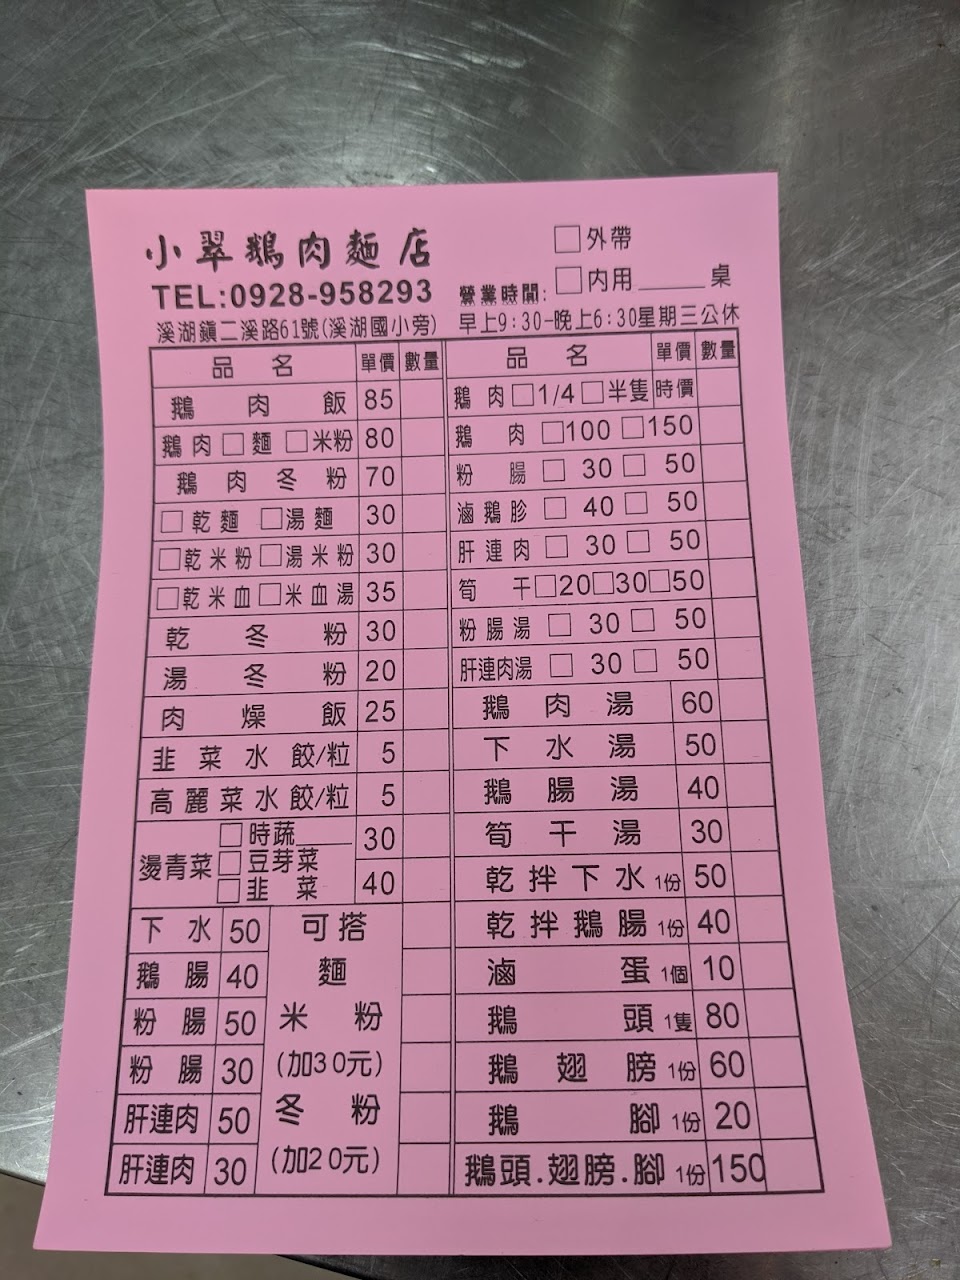 小翠鵝肉麵店
TEL:0928-958293
溪湖鎮二溪路61號(溪湖國小旁)
□外帶
□內用______桌
營業時間:
早上9:30-晚上6:30星期三公休
品名 單價 數量
鵝肉飯 85
鵝肉□麵 □米粉 80
鵝肉冬粉 70
□乾麵 □湯麵 30
□乾米粉□湯米粉 30
□乾米血□米血湯 35
乾冬粉 30
湯冬粉 20
肉燥飯 25
韭菜水餃/粒 5
高麗菜水餃/粒 5
燙青菜
□時蔬____ 30
□豆芽菜
□韭菜 40
下水 50
鵝腸 40
粉腸 50
粉腸 30
肝連肉 50
肝連肉 30
可搭
麵
米粉
(加30元)
冬粉
(加20元)
品名 單價 數量
鵝肉□1/4□半隻 時價
鵝肉 □100 □150
粉腸 □ 30 □ 50
滷鵝胗 □ 40 □ 50
肝連肉 □ 30 □ 50
筍干□20□30□50
粉腸湯 □ 30 □ 50
肝連肉湯 □ 30 □ 50
鵝肉湯 60
下水湯 50
鵝腸湯 40
筍干湯 30
乾拌下水 1份 50
乾拌鵝腸 1份 40
滷蛋 1個 10
鵝頭 1隻 80
鵝翅膀 1份 60
鵝腳 1份 20
鵝頭.翅膀.腳 1份 150